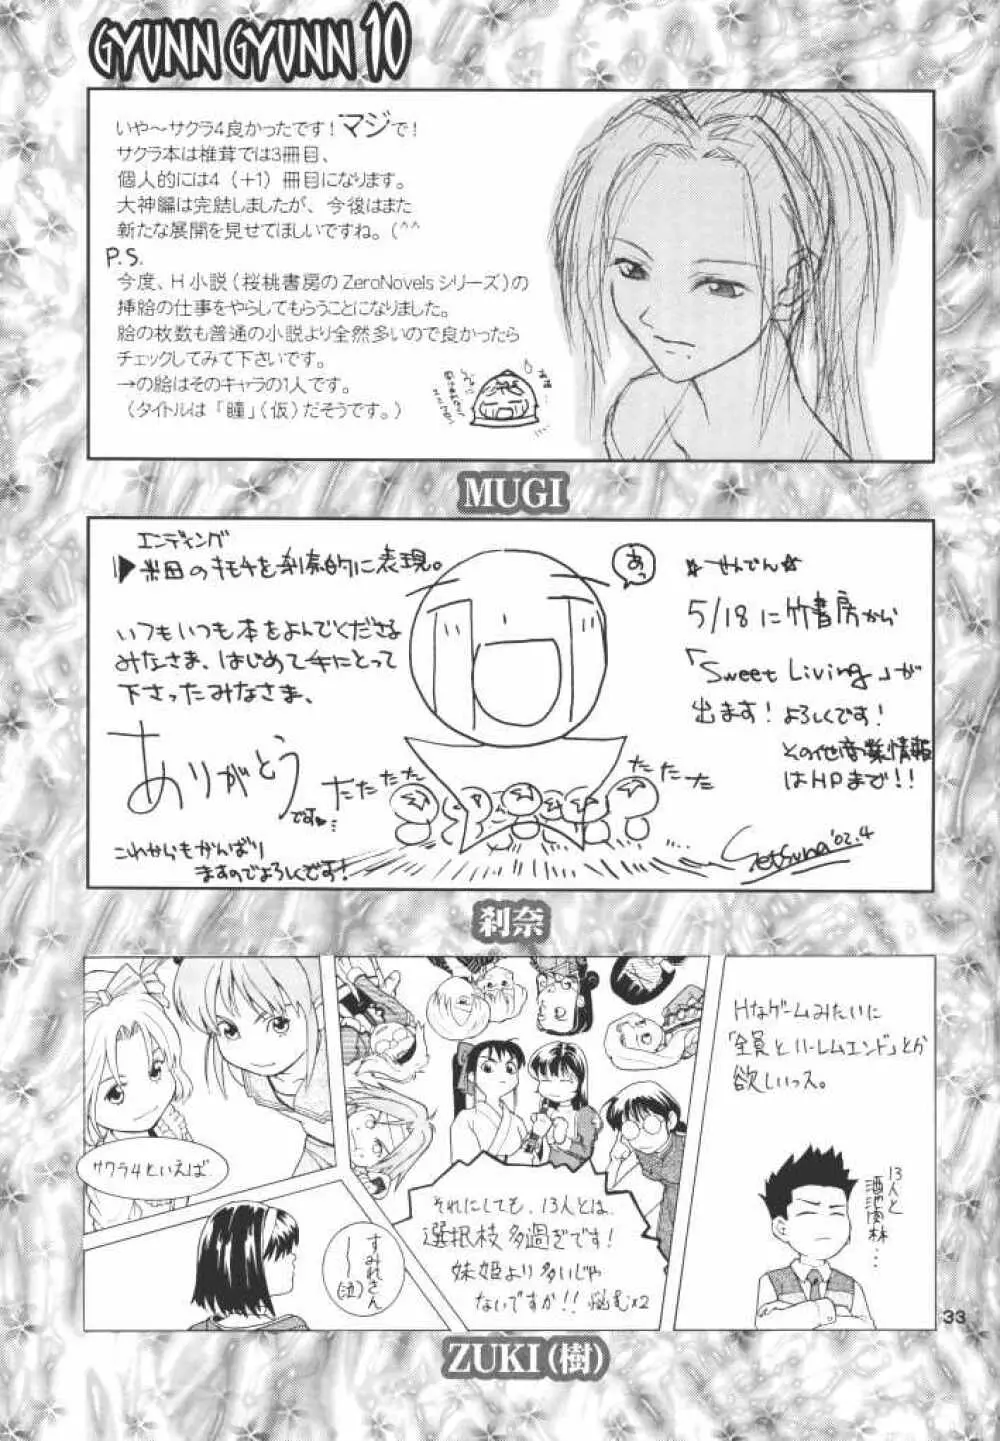 GYUNN GYUNN 10
いや～サクラ4良かったです！マジで！
サクラ本は椎茸では3冊目、
個人的には4（＋1）冊目になります。
大神編は完結しましたが、今後はまた
新たな展開を見せてほしいですね。(^^
P.S.
今度、H小説（桜桃書房のZeroNovelsシリーズ）の
挿絵の仕事をやらしてもらうことになりました。
絵の枚数も普通の小説より全然多いので良かったら
チェックしてみて下さいです。
→の絵はそのキャラの1人です。
（タイトルは「瞳」（仮）だそうです。）
MUGI
エンディング
米田のキモチを刹奈的に表現。
いつもいつも本をよんでくださる
みなさま、はじめて手にとって
下さったみなさま、
ありがとう
です
これからもがんばり
ますのでよろしくです！
あっ
たたたた
たたた
☆せんでん☆
5/18に竹書房から
「Sweet Living」が
出ます！よろしくです！
その他商業情報
はHPまで！！
Setsuna '02.4
刹奈
サクラ4といえば
すみれさん
ーー（泣）
それにしても、13人とは、
選択枝多過ぎです！
妹姫より多いじゃ
ないですか！！悩む×2
Hなゲームみたいに
「全員とハーレムエンド」とか
欲しいっス。
13人と
酒池肉林…
33
ZUKI（樹）